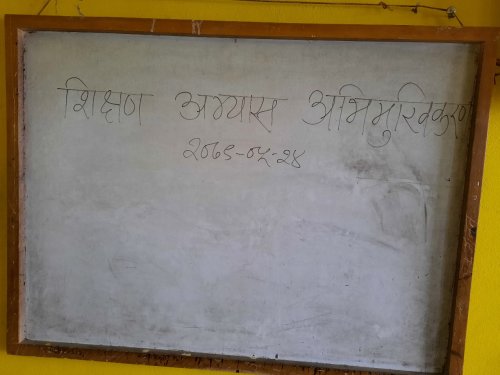 शिक्षण अभ्यास अभिमुखिकरण
२०७९-०५-२४